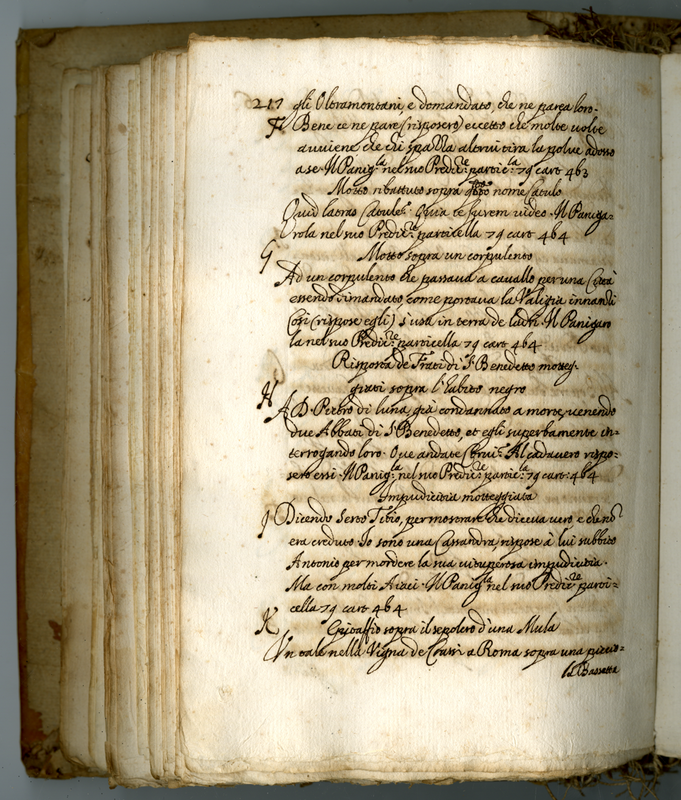 217 gli Oltramontani, e domandato, che ne parea loro.
F Bene ce ne pare (risposero) eccetto che molte uolte
auuiene che chi spazza altrui tira la polue adosso
a se. Il Panig.la nel suo Predic.re partic.la 79 cart 463
Motto ributtuto sopra nome Catulo
Quid latras Catule? Quia te furem uideo. Il Paniga=
rola nel suo Predic.re particella 79 cart 464
G Motto sopra un corpulento
Ad un corpulento che passaua a cauallo per una Città
essendo dimandato come portaua la Valigia innanzi
Così (rispose egli) s'usa in terra de ladri. Il Panigaro
la nel suo Predic.re particella 79 cart 464
Risposta de Frati di S. Benedetto motteg=
giati sopra l'habito negro
H A D. Pietro di luna, già condannato a morte, uenendo
due Abbati di S. Benedetto, et egli superbamente in=
terrogando loro. Oue andate Corui? Al cadauero rispo=
sero essi. Il Panig.la nel suo Predic.re partic.la 79 cart. 464
Impudicitia motteggiata
I Dicendo Serto Titio, per mostrare che diceua uero e che nō
era creduto Io sono una Cassandra, rispose à lui subbito
Antonio per mordere la sua uituperosa impudicitia.
Ma con molti Aiaci. Il Panig.la nel suo Predic.re parti=
cella 79 cart 464
K Epitaffio sopra il sepolcro d'una Mula
Un tale nella Vigna de a Roma sopra una
Bassetta